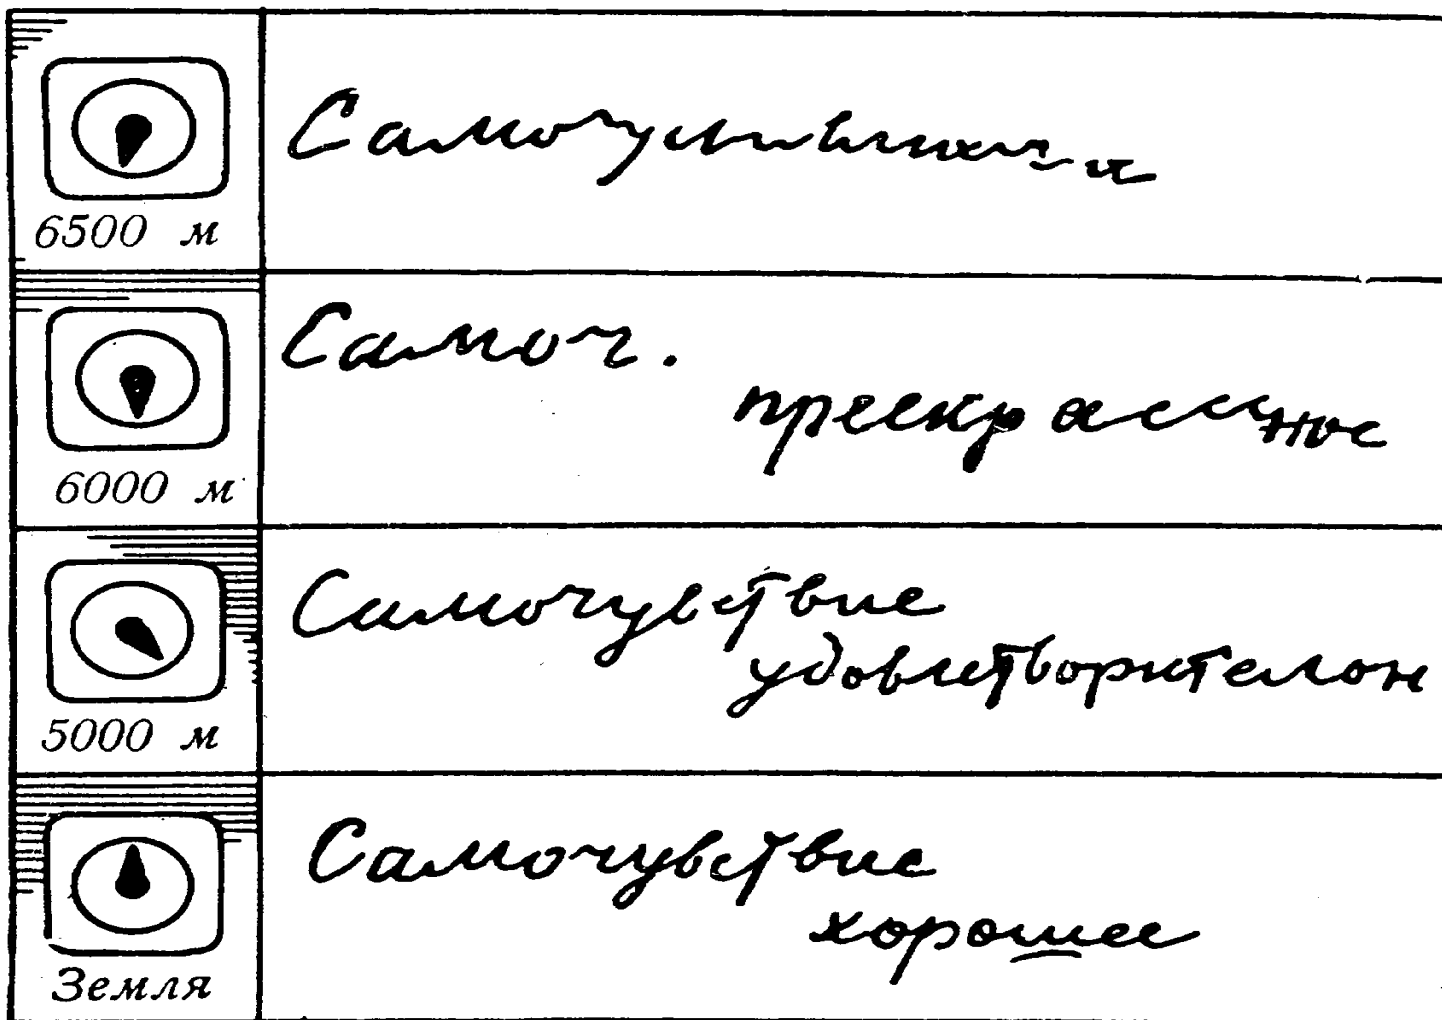 6500 м
6000 м
Самоч.
прееқрассное
5000 м
Самочувствие
удовлетворителон
Земля
Самочувствие
хорошее